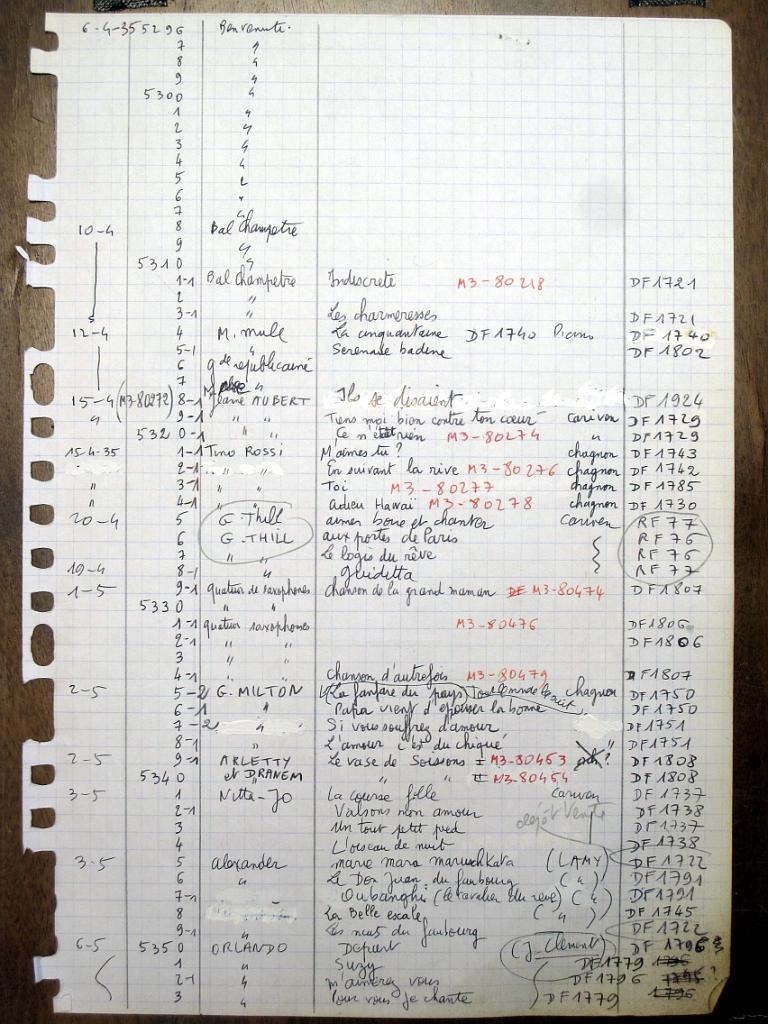 6-4-35 5296 Benvenuto.
7 "
8 "
9 "
5300 "
1 "
2 "
3 "
4 "
5 "
6 "
7 "
10-4 8 Bal Champetre
9 "
5310 "
1-1 Bal Champetre Indiscrete M3-80218 DF1721
2 "
3-1 " Les charmeresses DF1721
12-4 4 M. mule La cinquantaine DF1740 Piano DF 1740
5-1 " Serenade badine DF 1802
6 gde republicaine
7 "
15-4 (M3-80272) 8-1 Jeanne AUBERT Ils se disaient DF 1924
" 9-1 " " Tiens moi bien contre ton cœur cariven DF1729
5320-1 " " Ce n'est rien M3-80274 " DF1729
15.4.35 1-1 Tino ROSSI M'aimes tu? chagnon DF1743
2-1 " " En suivant la rive M3-80276 chagnon DF 1742
" 3-1 " " Toi M3-80277 chagnon DF1785
" 4-1 " adieu Hawaï M3-80278 chagnon DF 1730
20-4 5 G. Thill aimer boire et chanter Cariven RF 77
6 G. THILL aux portes de Paris RF 76
7 " " Le logis du rêve RF 76
19-4 8-1 " Giuditta RF 77
1-5 9-1 quatuor de saxophones chanson de la grand maman DF M3-80474 DF1807
5330 " "
1-1 quatuor saxophones M3-80476 DF1806
2-1 " " DF1806
3 " "
4-1 " " chanson d'autrefois M3-80479 DF1807
2-5 5-2 G. MILTON La fanfare du pays chagnon DF1750
6-1 " Papa vient d'épouser la bonne DF1750
7-2 " Si vous souffrez d'amour DF1751
8-1 " L'amour c'est du chiqué " DF1751
2-5 9-1 ARLETTY Le vase de Soissons I M3-80463 ? DF1808
5340 et DRANEM " " II M3-80464 DF 1808
3-5 1 Nitta-Jo La course folle cariven DF1737
2-1 " Valsons mon amour dépôt Vente DF1738
3 " Un tout petit pied DF1737
4 " L'oiseau de nuit DF1738
3-5 5 alexander marie mara maruschkaka (LAMY) DF1722
6 " Le Don Juan du faubourg ( " ) DF1791
7-1 Oubanghi (le cavalier du rêve) ( " ) DF1791
8 La Belle escale ( " ) DF 1745
9-1 " Les nuits du faubourg DF1722
6-5 5350 ORLANDO Depart (J. Clement) DF 1796 ?
1 " Suzy DF1779 1796
2-1 " m'aimerez vous DF1796 ?
3 " Pour vous je chante DF1779 1796